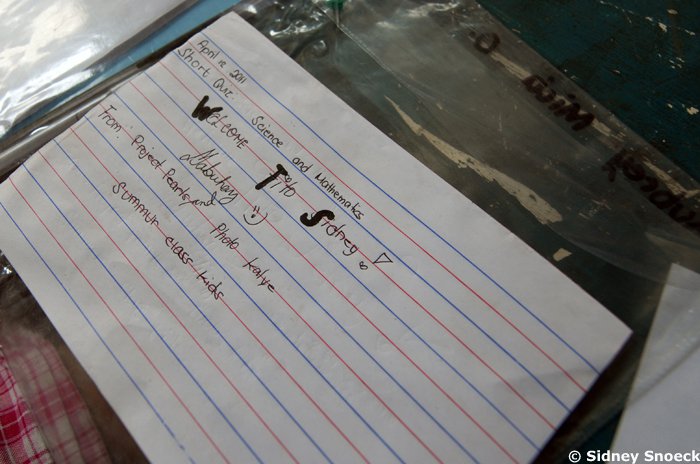 April 12 2011
Short Quiz: Science and Mathematics
Welcome Tito Sidney!
Mabuhay
From: Project Pearls and Photo Kalye
Summur class kids
Mica O.
© Sidney Snoeck